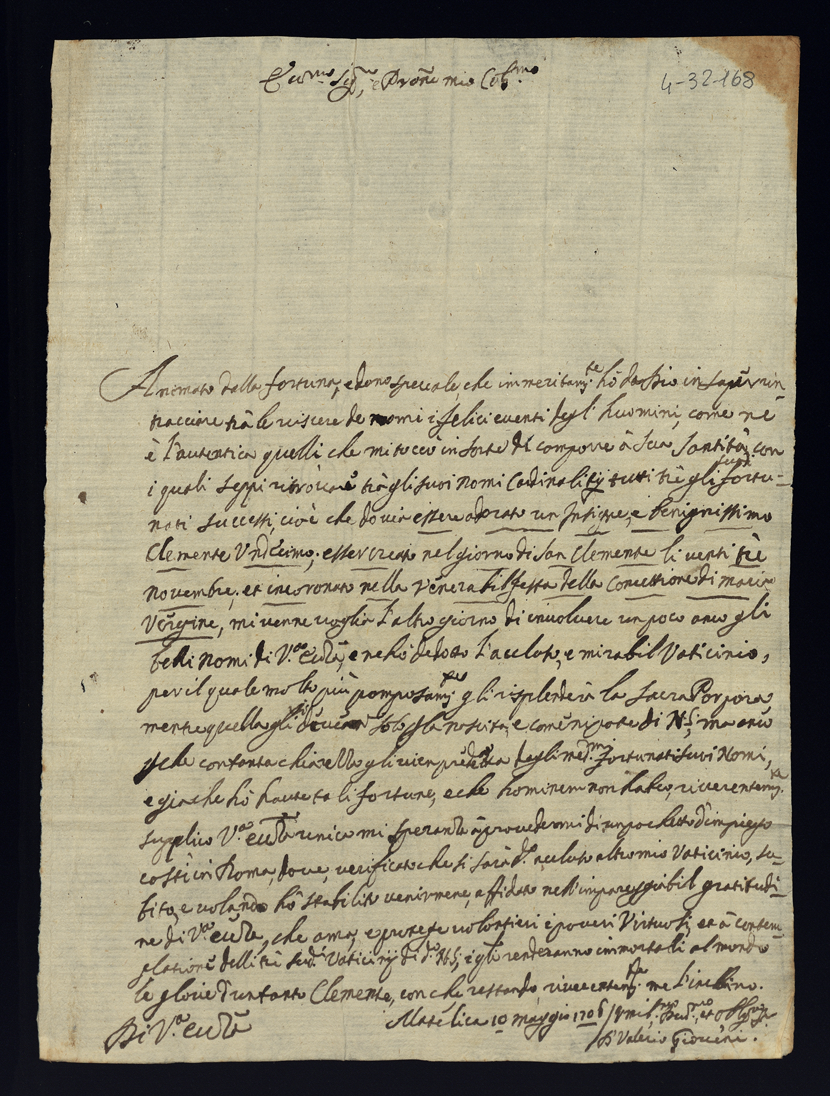 4-32-168
Ecc.mo Sig.re e Pro̅ne mio Col.mo
Animato dalla fortuna, e dono speciale, che immeritam.te hò da Dio in saper rin
tracciare trà le viscere de nomi i felici eventi degl'huomini, come ne
è l'autentica quelli che mi toccò in sorte di comporre à Sua Santità, con
i quali seppi ritrovare trà gli suoi nomi Cardinalitij tutti trè gli fortu-
nati successi, cioè che dovea essere adorato un e benignissimo
Clemente Undecimo; esser creato nel giorno di San Clemente li venti trè
novembre; et incoronato nella venerabil festa della Concettione di maria
Vergine, mi venne voglia l'altro giorno di involvere un poco anco gli
belli nomi di V.ra Ecc.za, e ne hò dedotto l'accluso, e mirabil Vaticinio,
per il quale molto più pomposam.te gli risplenderà la sacra Porpora,
mentre quella gli solo p la nascita, e come nipote di N.S., ma anco
p che con tanta chiarezza gli vien predetta degli med.mi fortunati suoi Nomi,
e già che hò hauta la fortuna, e che hominem non habeo, riverentem.te
supplico V.ra Ecc.za unica mi speranza à provedermi di un pochetto d'impiego
costì in Roma, dove, verificato che si sarà d.o accluso altro mio Vaticinio, su-
bito, e volando hò stabilito venirmene, affidato nell'impareggiabil gratitudi-
ne di V.ra Ecc.za, che ama, e protege volontieri i poveri Virtuosi, et à contem-
platione delli trè sud.i Vaticinij di d.o N.S., i gli renderanno immortali al mondo
le glorie d'un tanto Clemente, con che restando, riverentem.te me l'inchino.
Di V.ra Ecc.za
Matelica 10 maggio 1706
D. Valerio